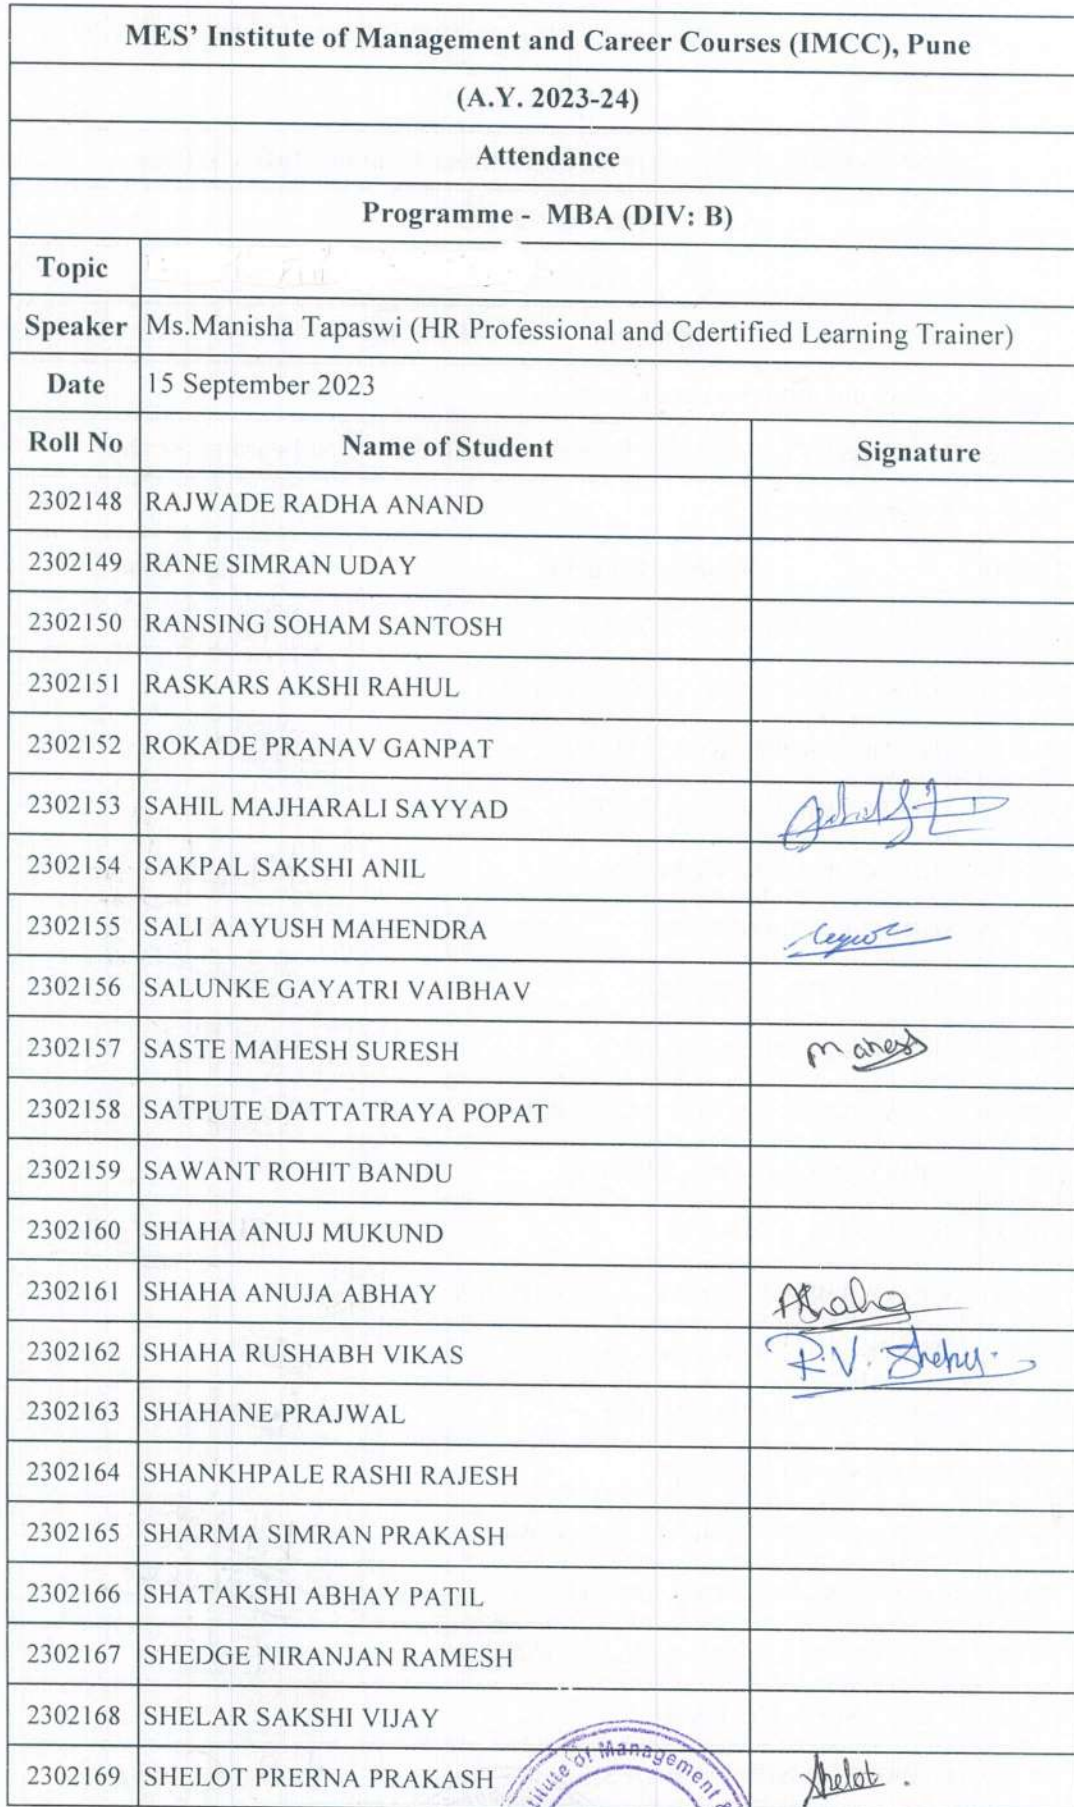 MES' Institute of Management and Career Courses (IMCC), Pune
(A.Y. 2023-24)
Attendance
Programme - MBA (DIV: B)
Topic
Speaker Ms.Manisha Tapaswi (HR Professional and Cdertified Learning Trainer)
Date 15 September 2023
Roll No Name of Student Signature
2302148 RAJWADE RADHA ANAND
2302149 RANE SIMRAN UDAY
2302150 RANSING SOHAM SANTOSH
2302151 RASKARS AKSHI RAHUL
2302152 ROKADE PRANAV GANPAT
2302153 SAHIL MAJHARALI SAYYAD
2302154 SAKPAL SAKSHI ANIL
2302155 SALI AAYUSH MAHENDRA
2302156 SALUNKE GAYATRI VAIBHAV
2302157 SASTE MAHESH SURESH Mahesh
2302158 SATPUTE DATTATRAYA POPAT
2302159 SAWANT ROHIT BANDU
2302160 SHAHA ANUJ MUKUND
2302161 SHAHA ANUJA ABHAY AShaha
2302162 SHAHA RUSHABH VIKAS R.V.
2302163 SHAHANE PRAJWAL
2302164 SHANKHPALE RASHI RAJESH
2302165 SHARMA SIMRAN PRAKASH
2302166 SHATAKSHI ABHAY PATIL
2302167 SHEDGE NIRANJAN RAMESH
2302168 SHELAR SAKSHI VIJAY
2302169 SHELOT PRERNA PRAKASH Shelot.
of Management &